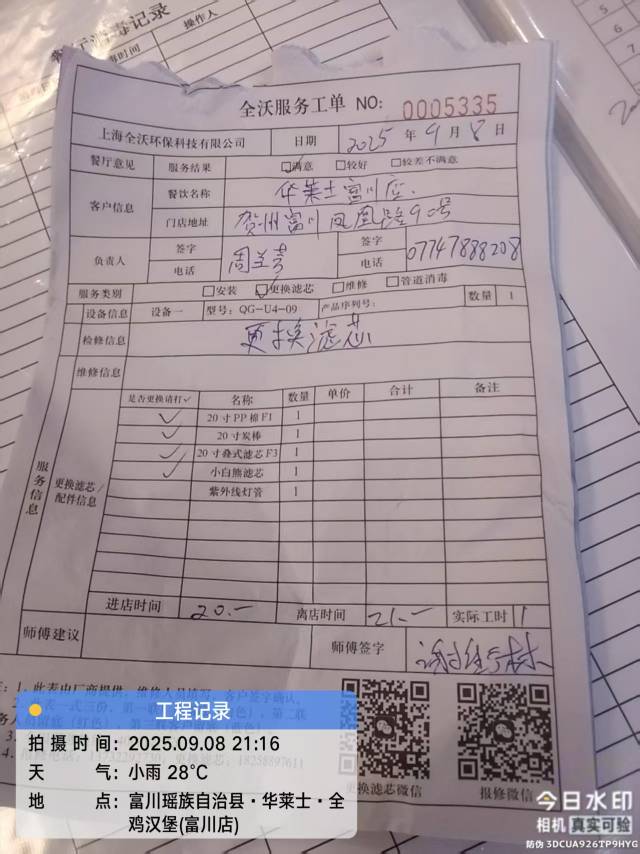 操作人
全沃服务工单 NO: 0005335
上海全沃环保科技有限公司 日期 2025 年 9 月 8 日
餐厅意见 服务结果 ☑满意 □较好 □较差不满意
客户信息 餐饮名称 华莱士富川店
门店地址 贺州富川凤凰路90号
负责人 签字 签字
电话 电话 07747888208
服务类别 □安装 ☑更换滤芯 □维修 □管道消毒
设备信息 设备一 型号: QG-U4-09 产品序列号: 数量 1
检修信息 更换滤芯
维修信息
服务信息
更换滤芯/配件信息
是否更换请打✓ 名称 数量 单价 合计 备注
✓ 20寸PP棉F1 1
✓ 20寸炭棒 1
✓ 20寸叠式滤芯F3 1
✓ 小白熊滤芯 1
紫外线灯管 1
进店时间 20.— 离店时间 21.— 实际工时 1
师傅建议 师傅签字
更换滤芯微信 报修微信
工程记录
拍摄时间: 2025.09.08 21:16
天气: 小雨 28°C
地点: 富川瑶族自治县·华莱士·全鸡汉堡(富川店)
今日水印
相机 真实可验
防伪 3DCUA926TP9HYG